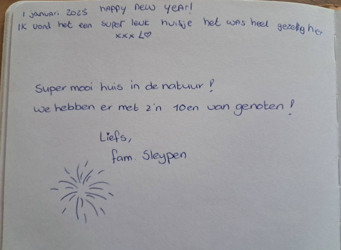 1 januari 2025 HAPPY NEW YEAR!
IK vond het een super leuk huisje het was heel gezellig hier
xxx L♡
Super mooi huis in de natuur!
we hebben er met z'n 10en van genoten!
Liefs,
fam. Sleypen